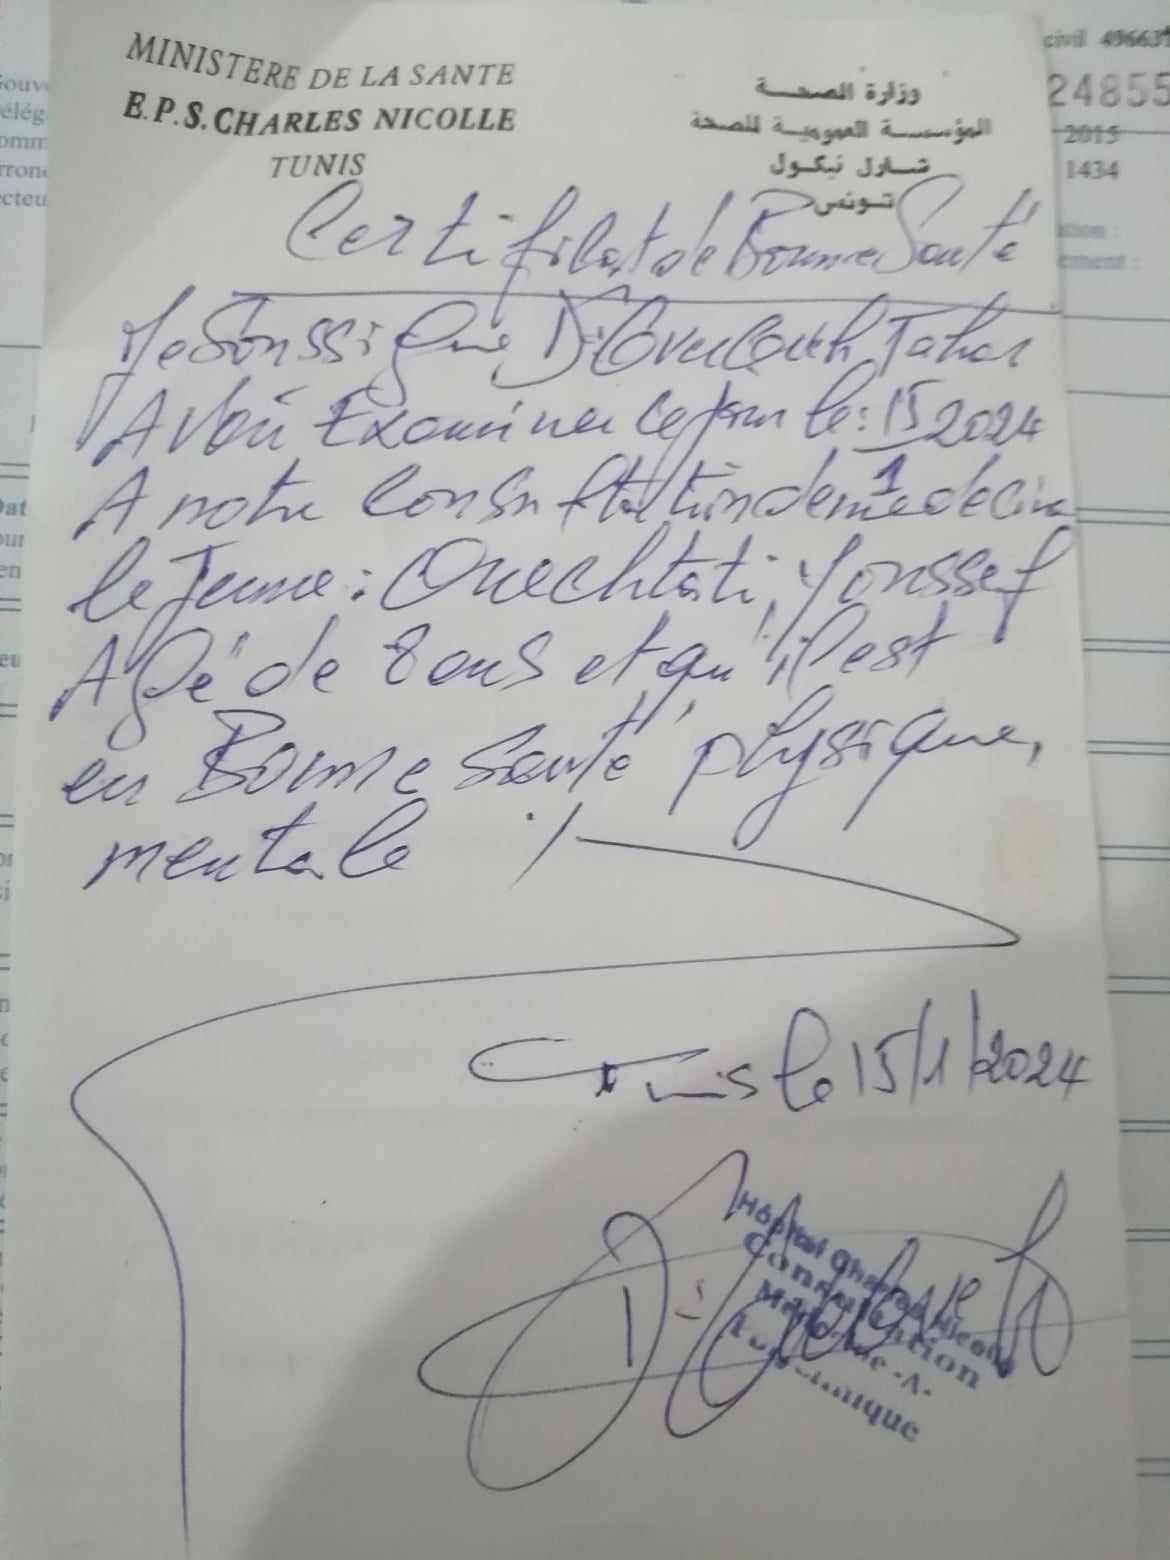 MINISTERE DE LA SANTE
E.P.S. CHARLES NICOLLE
TUNIS
وزارة الصحة
المؤسسة العمومية للصحة
شارل نيكول
تونس
Certificat de Bonne Santé
Je Soussigné, Dr Tahar
Avoir Examiner ce jour le: 15 2024
1
A notre Consultation de medecine
le Jeune: Ouechtati, Youssef
Agé de 8 ans et qu'il est
en Bonne Santé physique,
mentale
Tunis le 15/1/2024
Hôpital Charles Nicolle
Consultation
Médecine -A-
civil 496637
24855
2015
1434